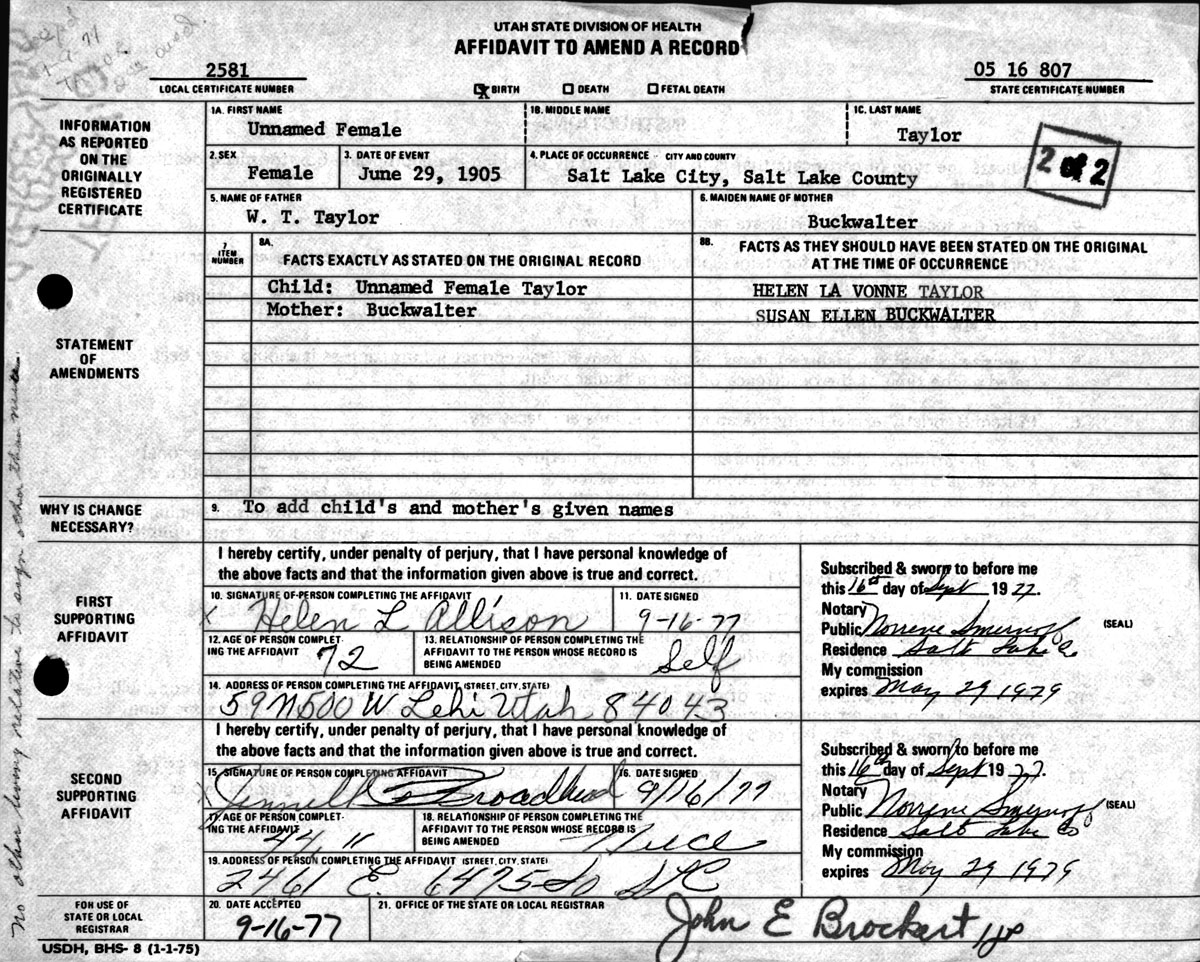 UTAH STATE DIVISION OF HEALTH
AFFIDAVIT TO AMEND A RECORD
2581
LOCAL CERTIFICATE NUMBER
X BIRTH DEATH FETAL DEATH
05 16 807
STATE CERTIFICATE NUMBER
INFORMATION AS REPORTED ON THE ORIGINALLY REGISTERED CERTIFICATE
1A. FIRST NAME 1B. MIDDLE NAME 1C. LAST NAME
Unnamed Female Taylor
2. SEX 3. DATE OF EVENT 4. PLACE OF OCCURRENCE - CITY AND COUNTY
Female June 29, 1905 Salt Lake City, Salt Lake County
2 of 2
5. NAME OF FATHER 6. MAIDEN NAME OF MOTHER
W. T. Taylor Buckwalter
7 ITEM NUMBER
8A. FACTS EXACTLY AS STATED ON THE ORIGINAL RECORD
8B. FACTS AS THEY SHOULD HAVE BEEN STATED ON THE ORIGINAL
AT THE TIME OF OCCURRENCE
STATEMENT OF AMENDMENTS
Child: Unnamed Female Taylor HELEN LA VONNE TAYLOR
Mother: Buckwalter SUSAN ELLEN BUCKWALTER
WHY IS CHANGE NECESSARY?
9. To add child's and mother's given names
FIRST SUPPORTING AFFIDAVIT
I hereby certify, under penalty of perjury, that I have personal knowledge of
the above facts and that the information given above is true and correct.
10. SIGNATURE OF PERSON COMPLETING THE AFFIDAVIT 11. DATE SIGNED
x Helen L Allison 9-16-77
12. AGE OF PERSON COMPLETING THE AFFIDAVIT 72
13. RELATIONSHIP OF PERSON COMPLETING THE AFFIDAVIT TO THE PERSON WHOSE RECORD IS BEING AMENDED Self
14. ADDRESS OF PERSON COMPLETING THE AFFIDAVIT (STREET, CITY, STATE)
59 N 500 W Lehi Utah 84043
Subscribed & sworn to before me
this 16th day of Sept 1977.
Notary
Public Norrene Smernoff (SEAL)
Residence Salt Lake Co
My commission
expires May 29 1979
SECOND SUPPORTING AFFIDAVIT
I hereby certify, under penalty of perjury, that I have personal knowledge of
the above facts and that the information given above is true and correct.
15. SIGNATURE OF PERSON COMPLETING AFFIDAVIT 16. DATE SIGNED
Broadhead 9/16/77
17. AGE OF PERSON COMPLETING THE AFFIDAVIT 44
18. RELATIONSHIP OF PERSON COMPLETING THE AFFIDAVIT TO THE PERSON WHOSE RECORD IS BEING AMENDED Niece
19. ADDRESS OF PERSON COMPLETING THE AFFIDAVIT (STREET, CITY, STATE)
2461 E. 6475 So SLC
Subscribed & sworn to before me
this 16th day of Sept 1977.
Notary
Public Norrene Smernoff (SEAL)
Residence Salt Lake Co
My commission
expires May 29 1979
FOR USE OF STATE OR LOCAL REGISTRAR
20. DATE ACCEPTED 21. OFFICE OF THE STATE OR LOCAL REGISTRAR
9-16-77 John E Brockert
USDH, BHS- 8 (1-1-75)
No other living relative to sign other than niece.